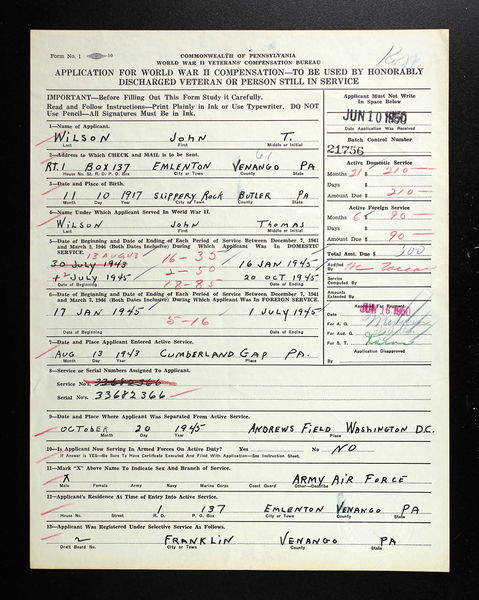 Form No. 1
COMMONWEALTH OF PENNSYLVANIA
WORLD WAR II VETERANS' COMPENSATION BUREAU
APPLICATION FOR WORLD WAR II COMPENSATION—TO BE USED BY HONORABLY
DISCHARGED VETERAN OR PERSON STILL IN SERVICE
IMPORTANT—Before Filling Out This Form Study it Carefully.
Read and Follow Instructions—Print Plainly in Ink or Use Typewriter. DO NOT
Use Pencil—All Signatures Must be in Ink.
Applicant Must Not Write
In Space Below
JUN 10 1950
Date Application Was Received
Batch Control Number
21756
1—Name of Applicant.
WILSON JOHN T.
Last First Middle or Initial
2—Address to Which CHECK and MAIL is to be Sent.
61
RT. 1 BOX 137 EMLENTON VENANGO PA
House No. St. R. D. P. O. Box City or Town County State
3—Date and Place of Birth.
11 10 1917 SLIPPERY ROCK BUTLER PA
Month Day Year City or Town County State
4—Name Under Which Applicant Served In World War II.
WILSON JOHN THOMAS
Last First Middle or Initial
5—Date of Beginning and Date of Ending of Each Period of Service Between December 7, 1941
and March 2, 1946 (Both Dates Inclusive) During Which Applicant Was in DOMESTIC
SERVICE.
13 AUG 43 16-35
30 JULY 1943 16 JAN 1945
2-50
2 JULY 1945 20 OCT 1945
Date of Beginning 18-85 Date of Ending
6—Date of Beginning and Date of Ending of Each Period of Service Between December 7, 1941
and March 2, 1946 (Both Dates Inclusive) During Which Applicant Was in FOREIGN SERVICE.
17 JAN 1945 1 JULY 1945
5-16
Date of Beginning Date of Ending
7—Date and Place Applicant Entered Active Service.
AUG 13 1943 CUMBERLAND GAP PA.
Month Day Year Place
8—Service or Serial Numbers Assigned To Applicant.
Service No's. 33682366
Serial No's. 33682366
9—Date and Place Where Applicant Was Separated From Active Service.
OCTOBER 20 1945 ANDREWS FIELD WASHINGTON D.C.
Month Day Year Place
10—Is Applicant Now Serving In Armed Forces On Active Duty? Yes No NO
If Answer is YES—Be Sure To Have Certificate Executed And Filed With Application—See Instruction Sheet.
11—Mark "X" Above Name To Indicate Sex And Branch of Service.
X ARMY AIR FORCE
Male Female Army Navy Marine Corps Coast Guard Other—Describe
12—Applicant's Residence At Time of Entry Into Active Service.
1 137 EMLENTON VENANGO PA
House No. Street R. D. P. O. Box City or Town County State
13—Applicant Was Registered Under Selective Service As Follows.
2 FRANKLIN VENANGO PA
Draft Board No. City or Town County State
Active Domestic Service
Months 21 $ 210
Days $
Amount Due $ 210
Active Foreign Service
Months 6 $ 90
Days $
Amount Due $ 90
Total Amt. Due $ 300
Audited By
Service Computed By
Amounts Extended By
Application For Payment
JUN 16 1950
For A. G.
For Aud. G.
For S. T.
Application Disapproved
By